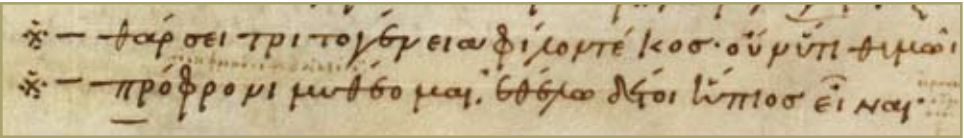 ※ — θάρσει τριτογένεια φίλον τέκος· οὔ νύ τι θυμῶι
※ — πρόφρονι μυθέομαι, ἐθέλω δέ τοι ἤπιος εἶναι·